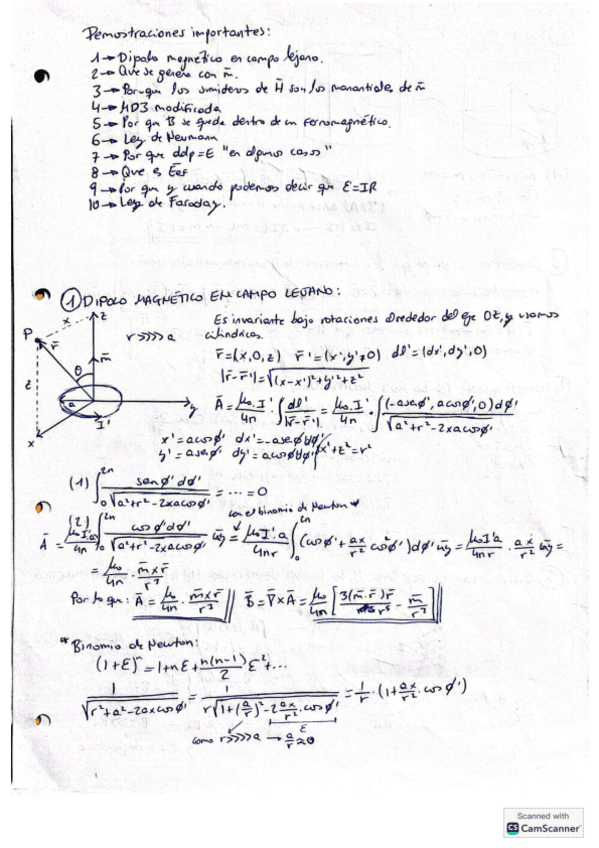 Demostraciones importantes:
1→ Dipolo magnético en campo lejano.
2→ Que se genera con m̄.
3→ Por qué los sumideros de H̄ son los manantiales de m̄
4→ HD3 modificada
5→ Por que B se queda dentro de un ferromagnético.
6→ Ley de Neumann
7→ Por que ddp=E "en algunos casos"
8→ Que es Ēef
9→ Por que y cuando podemos decir que E=IR
10→ Ley de Faraday.
① DIPOLO MAGNÉTICO EN CAMPO LEJANO:
Es invariante bajo rotaciones alrededor del eje OZ, y usamos
r>>>>a cilíndricas.
r̄=(x,0,z) r̄'=(x',y',0) dl̄'=(dx',dy',0)
|r̄-r̄'|=√((x-x')²+y'²+z²)
Ā = μ₀I'/4π ∫ dl̄'/|r̄-r̄'| = μ₀I'/4π · ∫ (-asenϕ', acosϕ', 0)dϕ'/√(a²+r²-2xacosϕ')
x'=acosϕ' dx'=-asenϕ'dϕ'
y'=asenϕ' dy'=acosϕ'dϕ' x²+z²=r²
P x z r̄ θ m̄ z a I' y x
(1) ∫₀²π senϕ'dϕ'/√(a²+r²-2xacosϕ') = ... = 0
con el binomio de Newton *
(2)
Ā = μ₀I'a/4π ∫₀²π cosϕ'dϕ'/√(a²+r²-2xacosϕ') ūy = μ₀I'a/4πr ∫₀²π (cosϕ' + ax/r² cos²ϕ')dϕ' ūy = μ₀I'a/4πr · ax/r² ūy =
= μ₀/4π · m̄×r̄/r³
Por lo que: Ā = μ₀/4π · m̄×r̄/r³ || B̄ = ∇̄×Ā = μ₀/4π [3(m̄·r̄)r̄/r⁵ - m̄/r³] ||
* Binomio de Newton:
(1+ε)ⁿ = 1+nε+n(n-1)/2 ε²+...
1/√(r²+a²-2axcosϕ') = 1/(r√(1+(a/r)²-2ax/r²·cosϕ')) = 1/r · (1+ax/r²·cosϕ')
ε
como r>>>>a → a/r ≈ 0
Scanned with
CS CamScanner